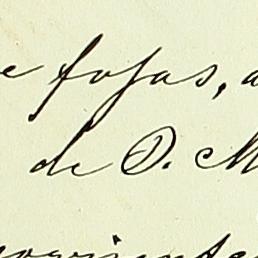 e fojas, a
de D. M